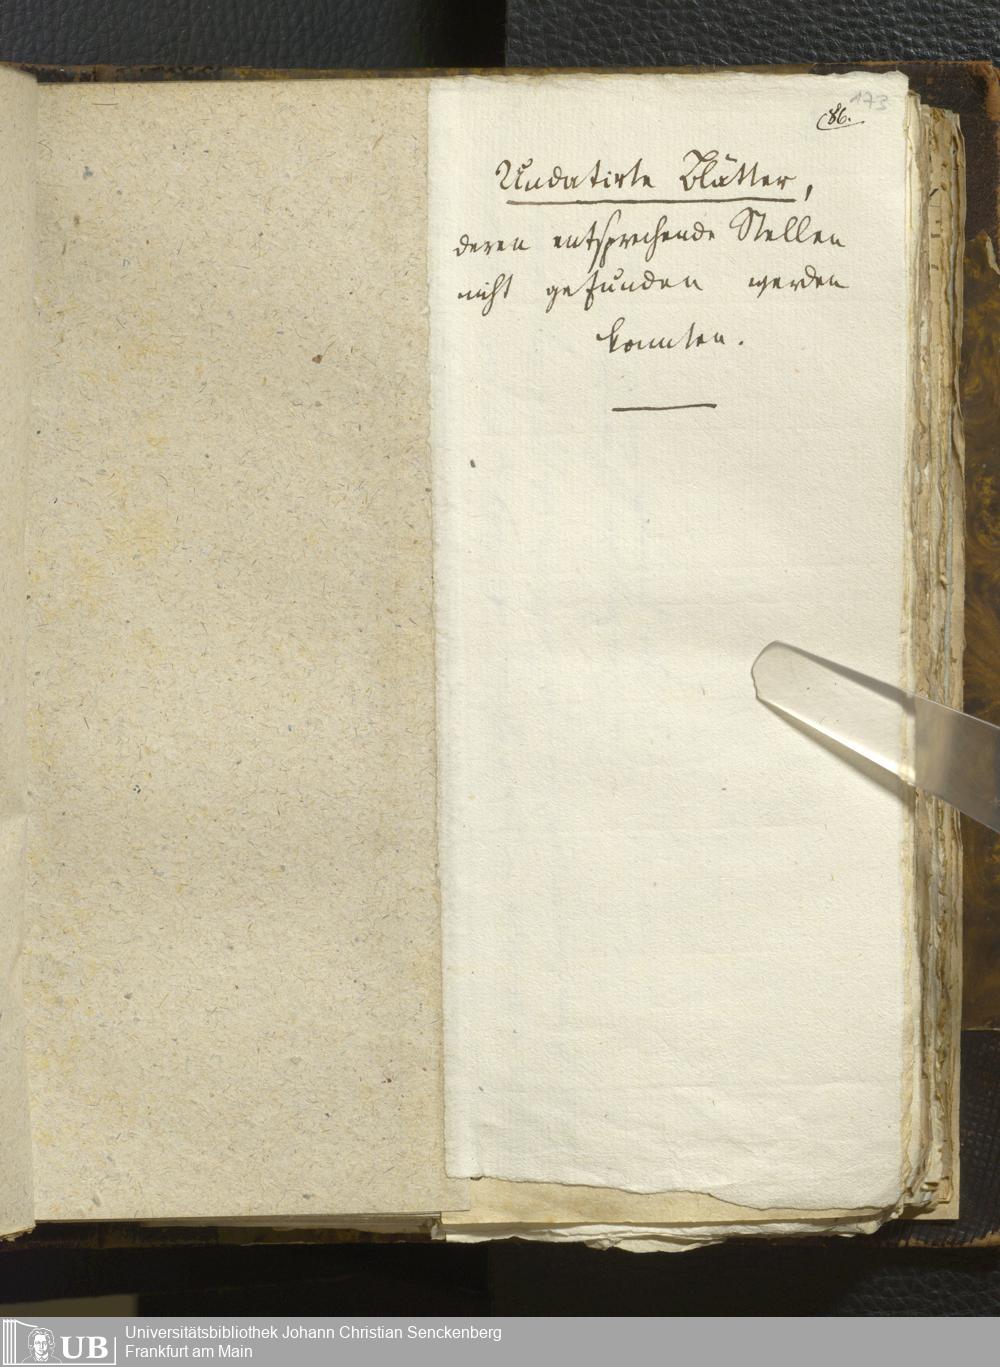 173
86.
Undatirte Blätter,
deren entsprechende Stellen
nicht gefunden werden
konnten.
UB
Universitätsbibliothek Johann Christian Senckenberg
Frankfurt am Main